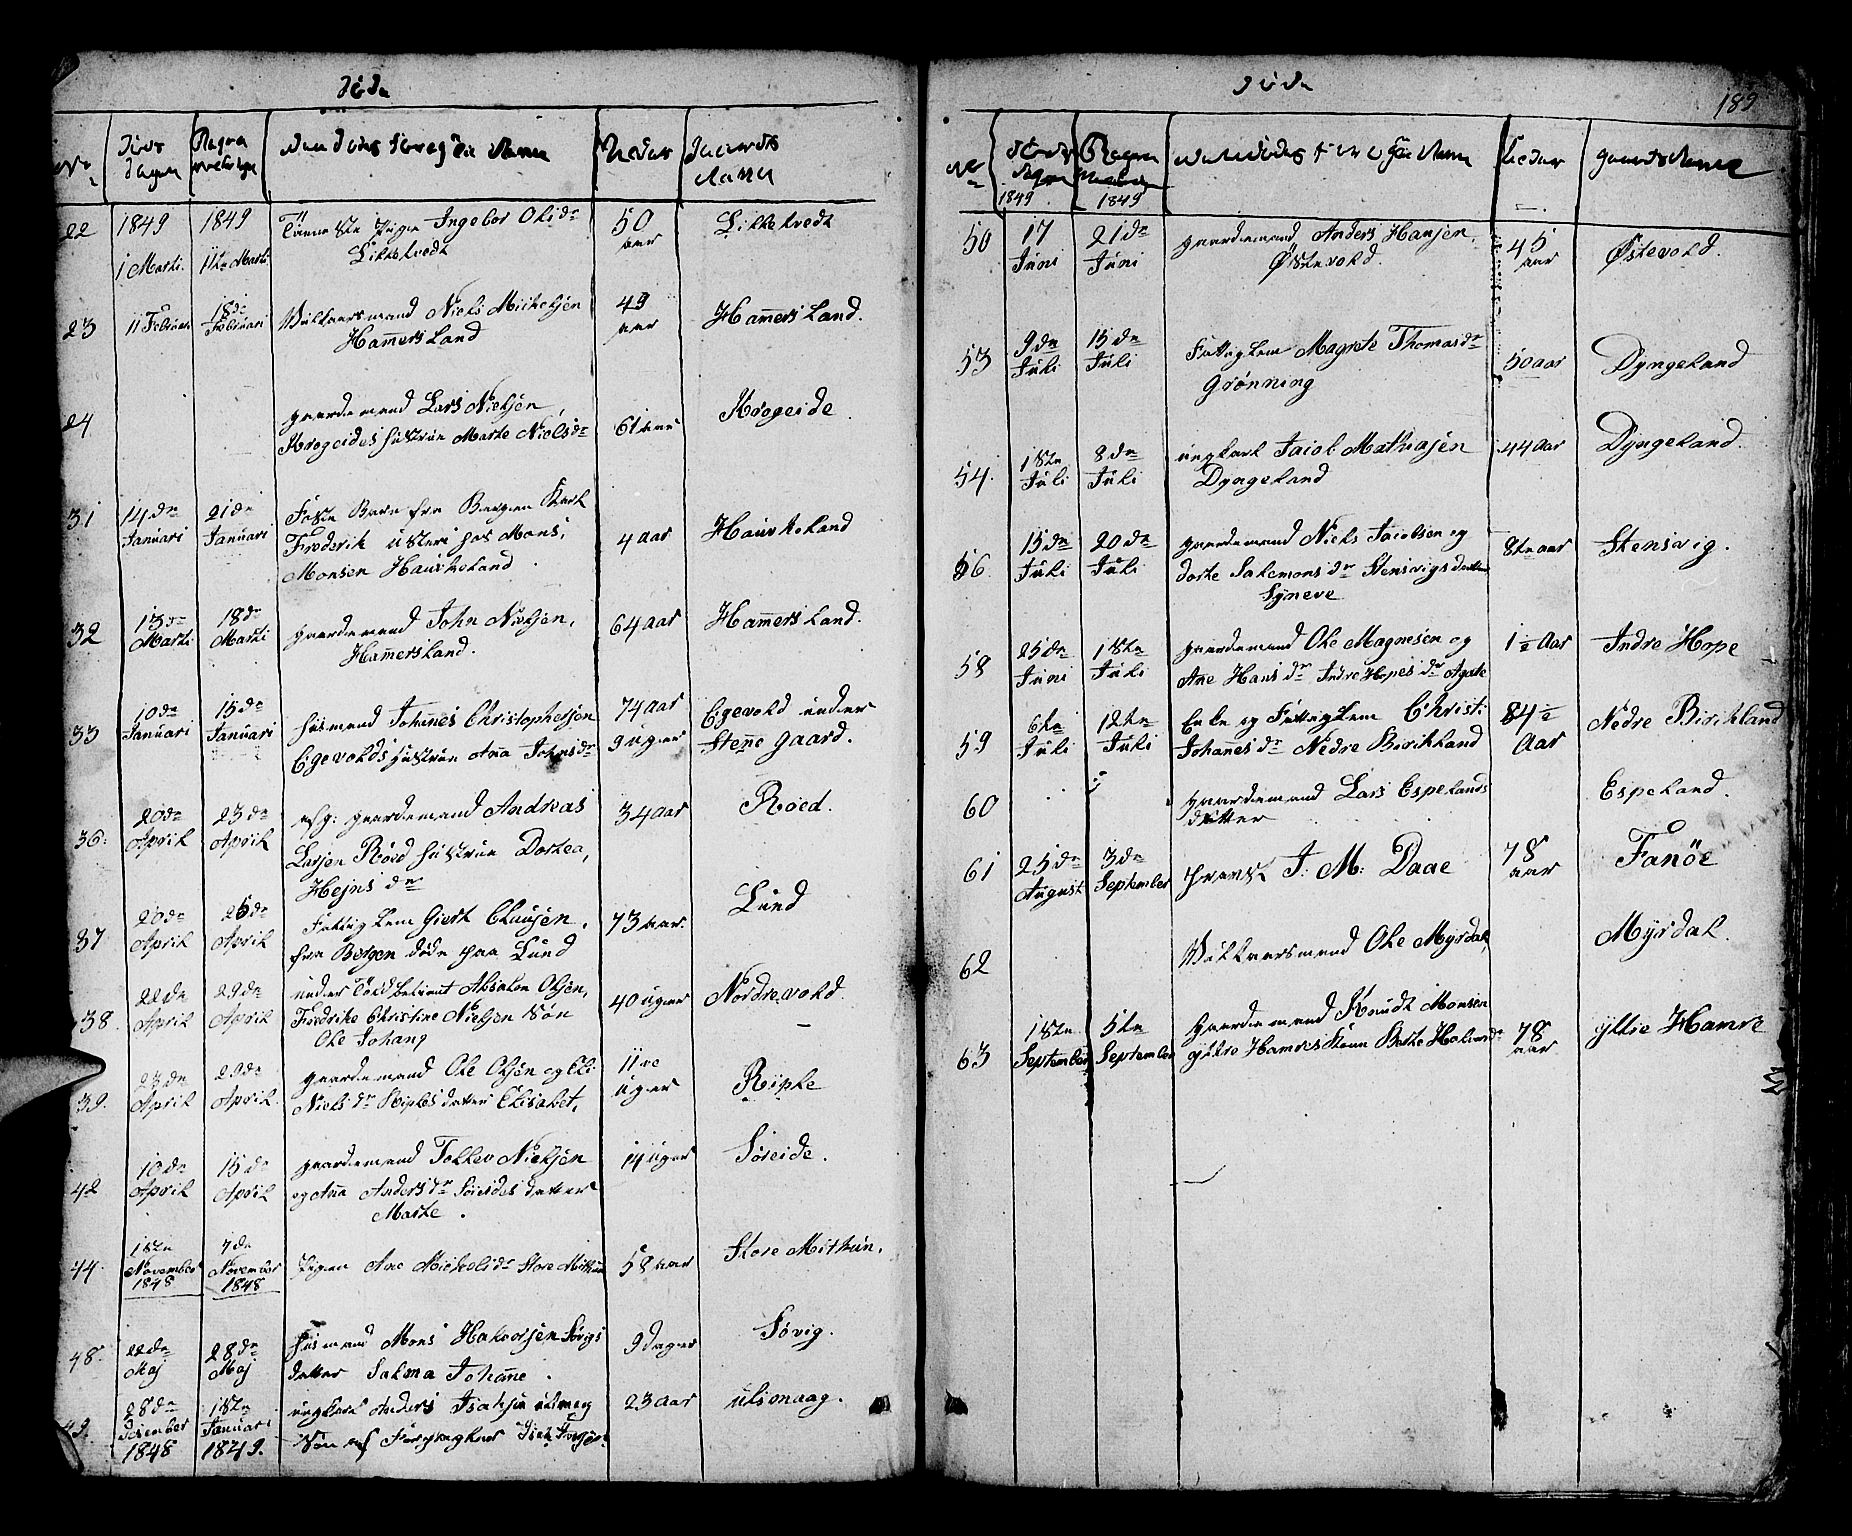 Døde
No
Døds
dagen
Den Dødes For og til Navn
Alder
Gaards
Navn
22
1849
1 Marti.
1849
11te Marti
Pigen Ingebor Olsdr
Likketvedt
50
aar
Likketvedt
23
11 Februari
18de
Februari
Niels Mickelsen
Hamersland
49
aar
Hamersland.
24
gaardemand Lars Nielsen
Krogeides Hustrue Marte Nielsdr
61 aar
Krogeide.
31
14de
Januari
21de
Januari
Foster Barn fra Bergen Karl
Frederik hos Mons
Monsen Haukeland.
4 aar
Haukeland
32
13de
Marti
18de
Marti
gaardemand John Nielsen,
Hamersland.
64 aar
Hamersland.
33
10de
Januari
15de
Januari
Husmand Johanes Christophersen
Egevolds Hustrue Ana Johnsdr
74 aar
9 uger
Egevold under
Stene gaard.
36.
20de
April
23de
April
gaardemand Andreas
Larsen Röed Hustrue Dortea,
Hejnsdr
34 aar
Röed.
37
20de
April
26de
April
Fattiglem Giert Clausen,
fra Bergen døde paa Lund
73 aar.
Lund
38.
22de
April
29de
April
under Toldbetient Absalon Olsen,
Fredrike Christine Nielsen Søn
Ole Johang
40 uger
Nordrevold.
39.
23de
April
29de
April.
gaardemand Ole Olsen og Eli
Nielsdr Riples datter Elisabet,
11ve
uger
Riple
42
10de
April
15de
April
gaardemand Tollev Nielsen
og Ana Andersdr Søreides datter
Marte.
14 uger
Søreide.
44.
1ste
November
1848
7de
November
1848
Pigen Ane Mickelsdr Store Mithun
58 aar
Store Mithun.
48.
22de
Maj
28de
Maj
Husmand Mons Halvorsen Søvigs
datter Salma Johane.
9 dager
Søvig.
49.
28de
Desember
1848
1ste
Januari
1849.
ungkarl Anders Isaksen
Søn af
23 aar
ulsmaag.
Døde
189
No
1849
1849
Alder
gaards Navne
50
17
Juni
21de
Juni
gaardemand Anders Hansen,
Østevold.
45
aar
Østevold.
53
9de
Juli
15de
Juli
Fattiglem Magrete Thomasdr
Grønning
50 aar
Dyngeland
54.
1ste
Juli
8de
Juli
ungkarl Jacob Mathiasen
Dyngeland
44 aar
Dyngeland.
56.
15de
Juli
20de
Juli
gaardemand Niels Jacobsen og
Dorte Salemonsdr Stensvigs datter
Syneve
8te aar
Stensvig.
58
25de
Juni
1ste
Juli
gaardemand Ole Magnesen og
Ane Hansdr Indre Hopes dr Agate
1½ Aar
Indre Hope
59
6te
Juli
12te
Juli
Enke og Fattiglem Christi
Johanesdr Nedre Birkland
84½
Aar
Nedre Birkland
60
gaardemand Lars Espelands
datter
Espeland.
61
25de
August
3de
September
J: M: Daae
78
aar
Fanöe
62
Ole Myrdal,
Myrdal.
63
1ste
September
5te
September
gaardemand Knudt Monsen
yttre Hamres Kone
78
aar
yttre Hamre